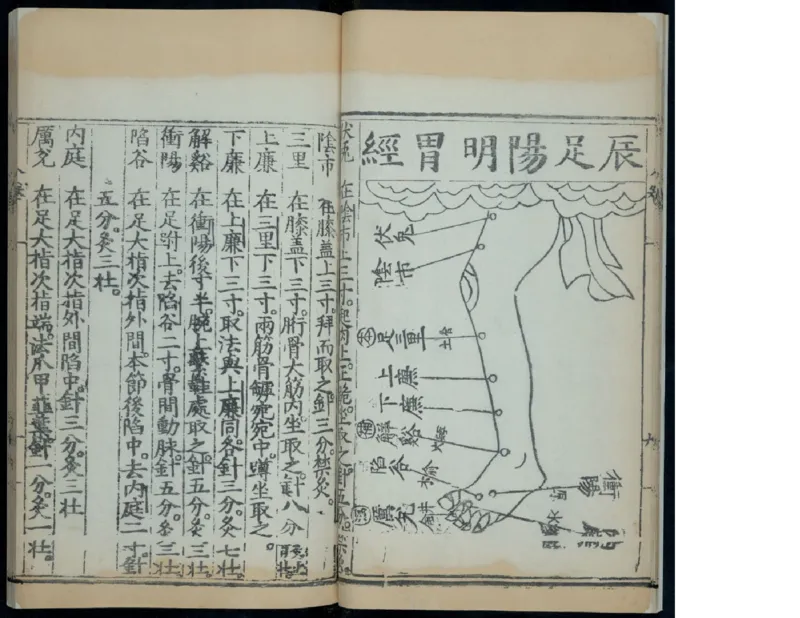 辰足陽明胃經
伏兎
陰市
足三里
合 土
上廉
下廉
解谿
陷谷
厲兌
陰市 在膝蓋上三寸。拜而取之。針三分。禁灸。
三里 在膝蓋下三寸。胻骨大筋內。坐取之。針八分
上廉 在三里下三寸。兩筋骨罅宛宛中。蹲坐取之。
下廉 在上廉下三寸。取法與上廉同。各針三分。灸七壯
解谿 在衝陽後寸半。腕上繫鞋處取之。針五分。灸三壯
衝陽 在足跗上。去陷谷二寸。骨間動脉。針五分。灸三壯
陷谷 在足大指次指外間本節後陷中。去內庭二寸。針
五分。灸三壯。
內庭 在足大指次指外間陷中。針三分。灸三壯
厲兌 在足大指次指端。去爪甲韭葉。針一分。灸一壯。